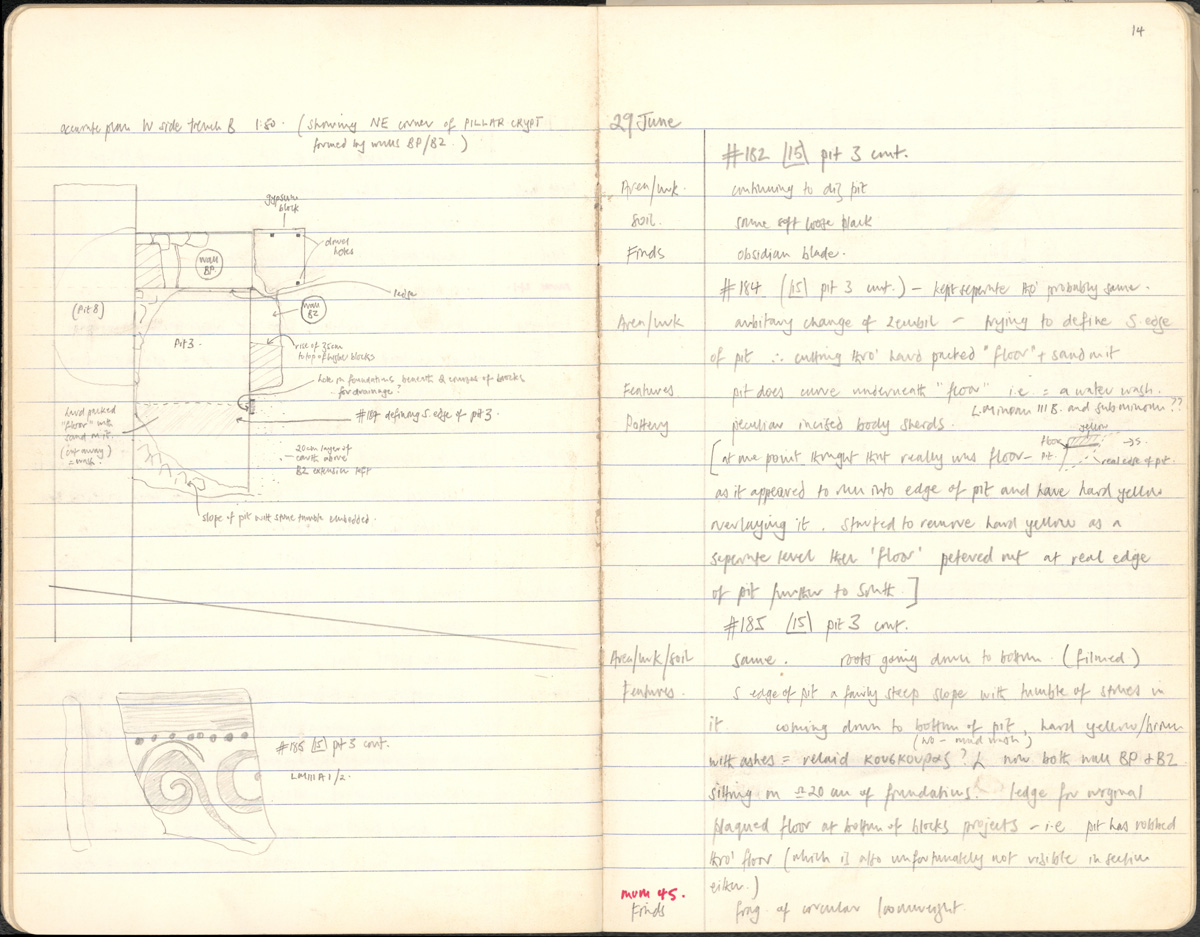 accurate plan W side trench B 1:50. (showing NE corner of PILLAR CRYPT
formed by walls BP/BZ.)
gypsum
block
dowel
holes
wall
BP
ledge
(Pit 8)
wall
BZ
Pit 3.
rise of 35cm
to top of higher blocks
hole in foundations beneath 2 courses of blocks
for drainage?
#184 defining S. edge of pit 3.
hard packed
"floor" with
sand in it.
(cut away)
= wash.
20cm layer of
earth above
BZ extension left
slope of pit with stone tumble embedded.
#185 [15] pt 3 cont.
LMIIIA1/2.
14
29 June
#182 [15] pit 3 cont.
Area/wk. continuing to dig pit
Soil. same soft loose black
Finds obsidian blade.
#184 ([15] pit 3 cont.) – kept separate tho' probably same.
Area/wk arbitary change of zembil – trying to define S. edge
of pit ∴ cutting thro' hard packed "floor" + sand in it
Features pit does curve underneath "floor" i.e = a water wash.
LMinoan IIIB. and subminoan??
Pottery peculiar incised body sherds.
yellow
floor → S.
pit. real edge of pit.
[at one point thought that really was floor –
as it appeared to run into edge of pit and have hard yellow
overlaying it. Started to remove hard yellow as a
separate level then 'floor' petered out at real edge
of pit further to South]
#185 [15] pit 3 cont.
Area/wk/soil same. roots going down to bottom. (filmed)
Features. S edge of pit a fairly steep slope with tumble of stones in
it coming down to bottom of pit, hard yellow/brown
(no – mud wash)
with ashes = relaid κουσκουρας? now both wall BP & BZ
sitting on ≏20 cm of foundations. ledge for original
plaqued floor at bottom of blocks projects – i.e pit has robbed
thro' floor (which is also unfortunately not visible in section
either.)
mum 45.
Finds frag. of circular loomweight.